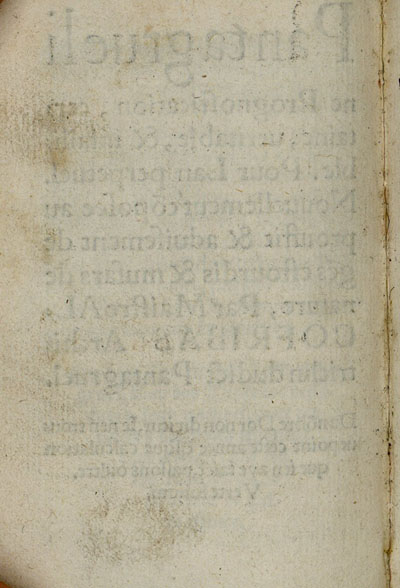 Pantagrueli
ne Prognosticatiõ, cer
taine, veritable, & infali
ble. Pour Lan perpetuel.
Nouuellemẽt cõposee au
prouffit & aduisement de
gẽs estourdis & musars de
nature, Par Maistre AL
COFRIBAS Archi
triclin dudict Pantagruel.
Du nõbre Dor non dicitur, Ie nen trouue
point ceste annee quelque calculation
que ien aye faict, passons oultre.
Verte folium.